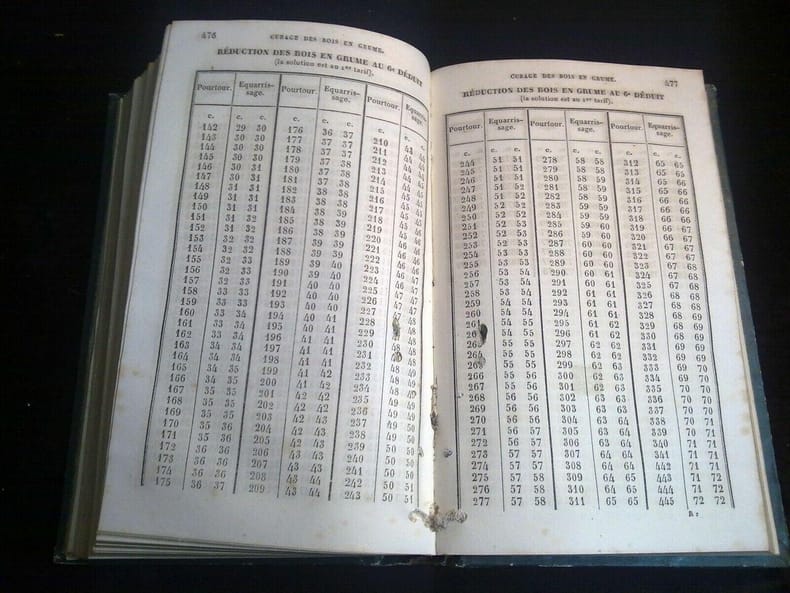 476
CUBAGE DES BOIS EN GRUME.
RÉDUCTION DES BOIS EN GRUME AU 6e DÉDUIT
(la solution est au 1er tarif).
Pourtour. Equarris-sage. Pourtour. Equarris-sage. Pourtour. Equarris-sage.
c. c. c. c. c. c. c.
142 29 30 176 36 37 210 43 44
143 30 30 177 37 37 211 44 44
144 30 30 178 37 37 212 44 44
145 30 30 179 37 38 213 44
146 30 31 180 37 38 214 44
147 30 31 181 37 38 215 44
148 31 31 182 38 38 216 45
149 31 31 183 38 38 217 45
150 31 31 184 38 39 218 45
151 31 32 185 38 39 219 45
152 31 32 186 38 39 220 46
153 32 32 187 39 39 221 46
154 32 32 188 39 39 222 46
155 32 33 189 39 40 223 46
156 32 33 190 39 40 224 46
157 32 33 191 40 40 225 47
158 33 33 192 40 40 226 47
159 33 33 193 40 40 227 47
160 33 34 194 40 41 228 48
161 33 34 195 40 41 229 48
162 33 34 196 41 41 230 48
163 34 34 197 41 41 231 48
164 34 34 198 41 41 232 48
165 34 35 199 41 42 233 48 49
166 34 35 200 41 42 234 48 49
167 35 35 201 42 42 235 49 49
168 35 35 202 42 42 236 49 49
169 35 35 203 42 43 237 49 50
170 35 36 204 42 43 238 49 50
171 35 36 205 42 43 239 50 50
172 36 36 206 43 43 240 50 50
173 36 36 207 43 43 241 50 50
174 36 36 208 43 44 242 50 51
175 36 37 209 43 44 243 50 51
CUBAGE DES BOIS EN GRUME.
477
RÉDUCTION DES BOIS EN GRUME AU 6e DÉDUIT
(la solution est au 1er tarif).
Pourtour. Equarris-sage. Pourtour. Equarris-sage. Pourtour. Equarris-sage.
c. c. c. c. c. c. c. c. c.
244 51 51 278 58 58 312 65 65
245 51 51 279 58 58 313 65 65
246 51 51 280 58 59 314 65 66
247 51 52 281 58 59 315 65 66
248 51 52 282 58 59 316 66 66
249 52 52 283 59 59 317 66 66
250 52 52 284 59 59 318 66 66
251 52 53 285 59 60 319 66 67
252 52 53 286 59 60 320 66 67
253 52 53 287 60 60 321 67 67
254 53 53 288 60 60 322 67 67
255 53 53 289 60 60 323 67 68
256 53 54 290 60 61 324 67 68
257 53 54 291 60 61 325 67 68
258 53 54 292 61 61 326 68 68
259 54 54 293 61 61 327 68 68
260 54 54 294 61 61 328 68 69
54 55 295 61 62 329 68 69
54 55 296 61 62 330 68 69
55 55 297 62 62 331 69 69
55 55 298 62 62 332 69 69
55 55 299 62 63 333 69 70
266 55 56 300 62 63 334 69 70
267 55 56 301 62 63 335 70 70
268 56 56 302 63 63 336 70 70
269 56 56 303 63 63 337 70 70
270 56 56 304 63 64 338 70 71
271 56 57 305 63 64 339 70 71
272 56 57 306 63 64 340 71 71
273 57 57 307 64 64 341 71 71
274 57 57 308 64 64 442 71 71
275 57 58 309 64 65 443 71 72
276 57 58 310 64 65 444 71 72
277 57 58 311 65 65 445 72 72